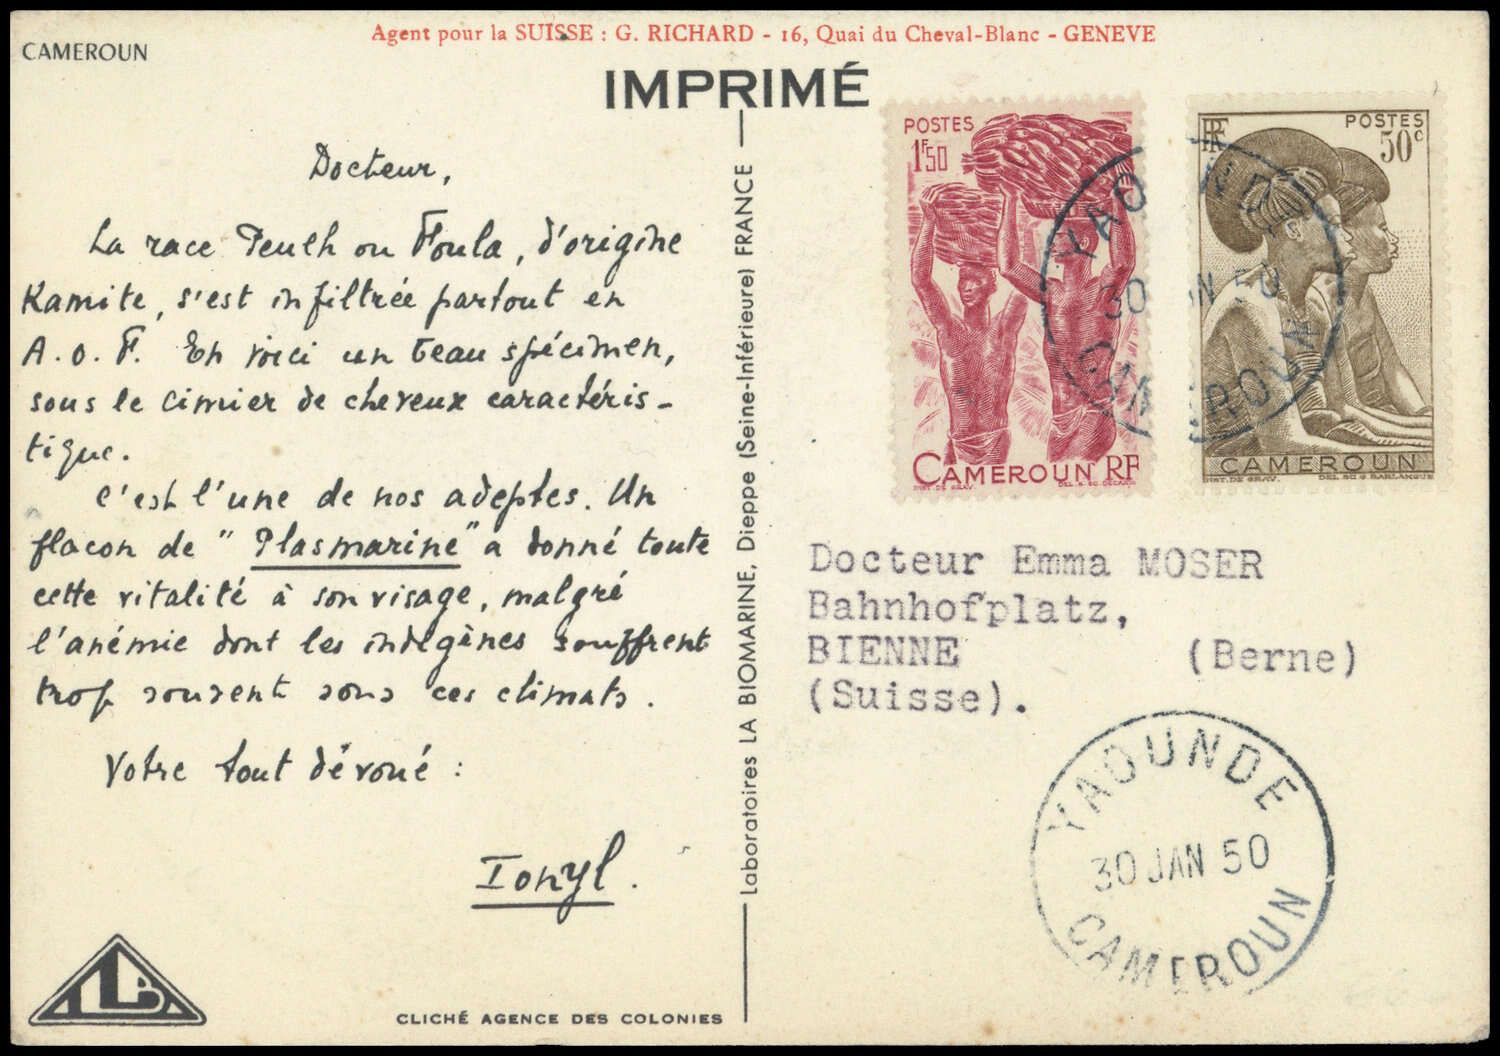 CAMEROUN
Agent pour la SUISSE : G. RICHARD - 16, Quai du Cheval-Blanc - GENEVE
IMPRIMÉ
Docteur,
La race Peulh ou Foula, d'origine
Kamite, s'est infiltrée partout en
A.O.F. En voici un beau spécimen,
sous le cimier de cheveux caractéris-
tique.
C'est l'une de nos adeptes. Un
flacon de "Plasmarine" a donné toute
cette vitalité à son visage, malgré
l'anémie dont les indigènes souffrent
trop souvent sous ces climats.
Votre tout dévoué :
Ionyl.
LB
CLICHÉ AGENCE DES COLONIES
Laboratoires LA BIOMARINE, Dieppe (Seine-Inférieure) FRANCE
POSTES
1F50
CAMEROUN RF
INST. DE GRAV.
RF
POSTES
50c
CAMEROUN
INST. DE GRAV. DEL. SC. G. BARLANGUE
YAOUNDE
30 JAN 50
CAMEROUN
Docteur Emma MOSER
Bahnhofplatz,
BIENNE (Berne)
(Suisse).
YAOUNDE
30 JAN 50
CAMEROUN